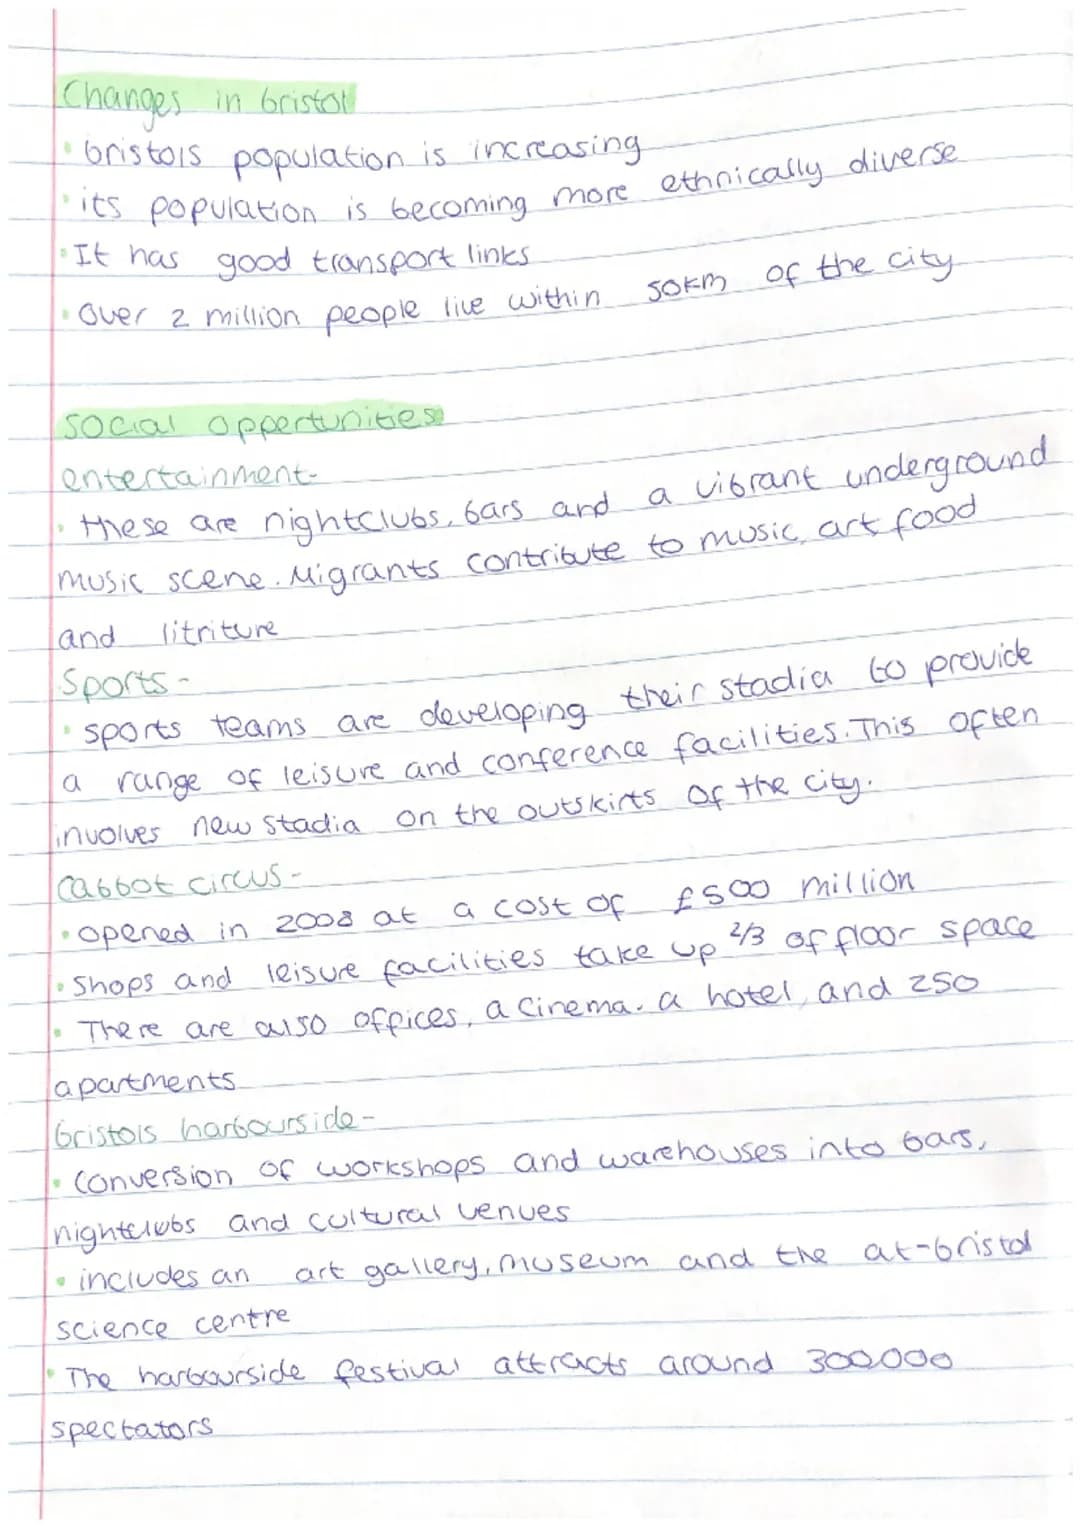 Changes in bristol
• bristols population is increasing
• its population is becoming more ethnically diverse
• It has good transport links
• Over 2 million people live within 50km of the city
Social oppertunities
entertainment-
• these are nightclubs, bars and a vibrant underground
music scene. Migrants contribute to music, art food
and litriture
Sports -
• sports teams are developing their stadia to provide
a range of leisure and conference facilities. This often
involves new stadia on the outskirts of the city.
Cabbot circus -
• opened in 2008 at a cost of £500 million
• Shops and leisure facilities take up 2/3 of floor space
• There are also offices, a cinema. a hotel, and 250
apartments
bristols harbourside -
• Conversion of workshops and warehouses into bars,
nightclubs and cultural venues
• includes an art gallery, museum and the at-bristol
science centre
• The harbourside festival attracts around 300,000
spectators